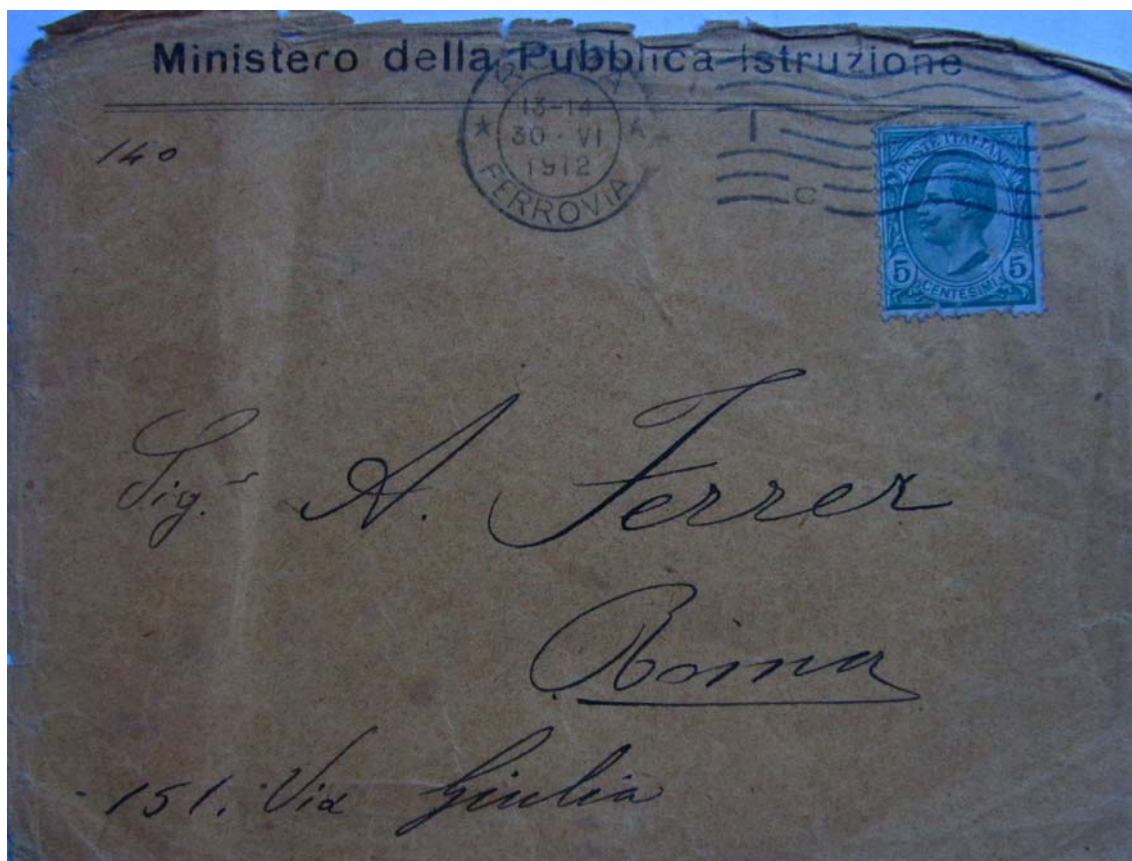 Ministero della Pubblica Istruzione
140
13-14
30·VI
1912
FERROVIA
A
T
C
POSTE ITALIANE
5 5
CENTESIMI
Sig.r A. Ferrer
Roma
151. Via Giulia